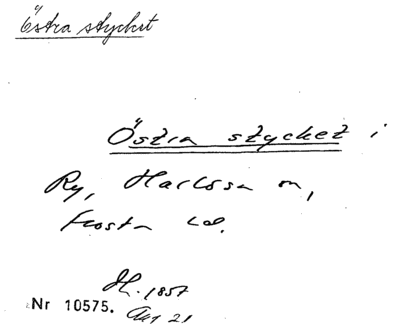 Östra stycket
Östra stycket i
Ry, Harlösa sn,
Frosta hd.
Nr 10575.
Akt 21